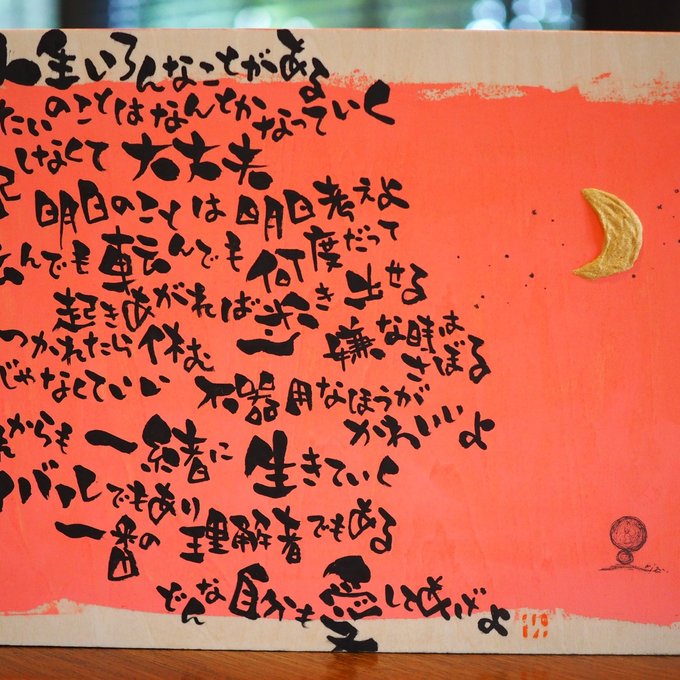 人生いろんなことがある
たいのことはなんとかなっていく
しなくて大丈夫
明日のことは明日考えよ
んでも転んでも何度だって
起きあがれば歩き出せる
つかれたら休む 嫌な時はさぼる
じゃなくていい 不器用なほうがかわいいよ
れからも一緒に生きていく
イバルでもあり
一番の理解者でもある
どんな自分も愛してあげよ